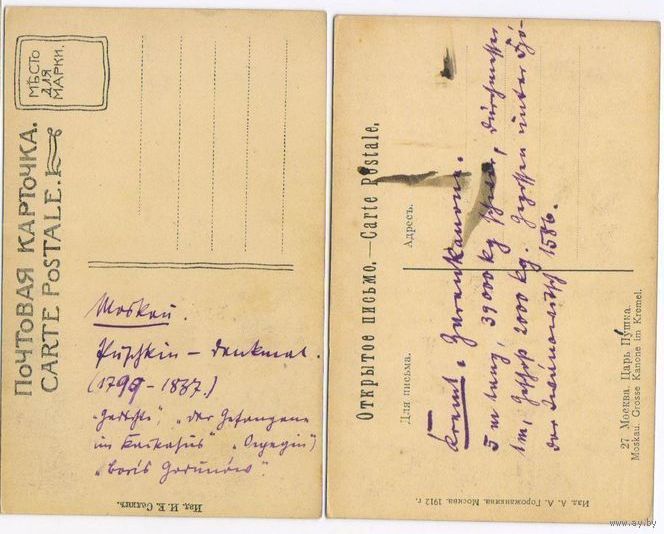 ПОЧТОВАЯ КАРТОЧКА.
CARTE POSTALE.
МѢСТО
ДЛЯ
МАРКИ.
Moskau.
Puschkin – Denkmal.
(1799-1837.)
Gedichte, „der Gefangene
im Kaukasus" „Onegin",
„Boris Godunów".
Изд. И. Е. Селинъ.
Открытое письмо.—Carte postale.
Адресъ.
Для письма.
Kreml, Zarenkanone.
5 m lang, 39000 kg schwer, Durchmesser
1m, Geschoß 2000 kg. Gegossen unter
Zar 1586.
27 Москва. Царь Пушка.
Moskau. Grosse Kanone im Kremel.
Изд. А. А. Горожанкина. Москва. 1912 г.
www.ay.by